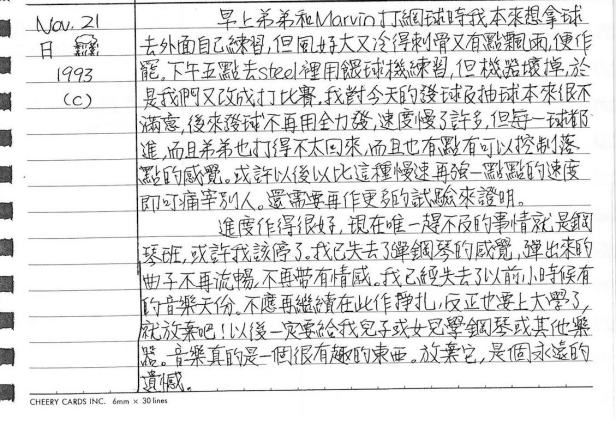 Nov. 21
日
1993
(C)
早上弟弟和Marvin打網球時我本來想拿球
去外面自己練習,但風好大又冷得刺骨又有點飄雨,便作
罷。下午五點去steel裡用餵球機練習,但機器壞掉,於
是我們又改成打比賽。我對今天的發球及抽球本來很不
滿意,後來發球不再用全力發,速度慢了許多,但每一球都
進,而且弟弟也打得不太回來,而且也有點有可以控制落
點的感覺。或許以後以比這種慢速再強一點點的速度
即可痛宰別人。還需要再作更多的試驗來證明。
進度作得很好,現在唯一趕不及的事情就是鋼
琴班,或許我該停了。我已失去了彈鋼琴的感覺,彈出來的
曲子不再流暢,不再帶有情感。我已經失去了以前小時候有
的音樂天份。不應再繼續在此作掙扎,反正也要上大學了,
就放棄吧!以後一定要給我兒子或女兒學鋼琴或其他樂
器。音樂真的是一個很有趣的東西。放棄它,是個永遠的
遺憾。
CHEERY CARDS INC. 6mm × 30 lines